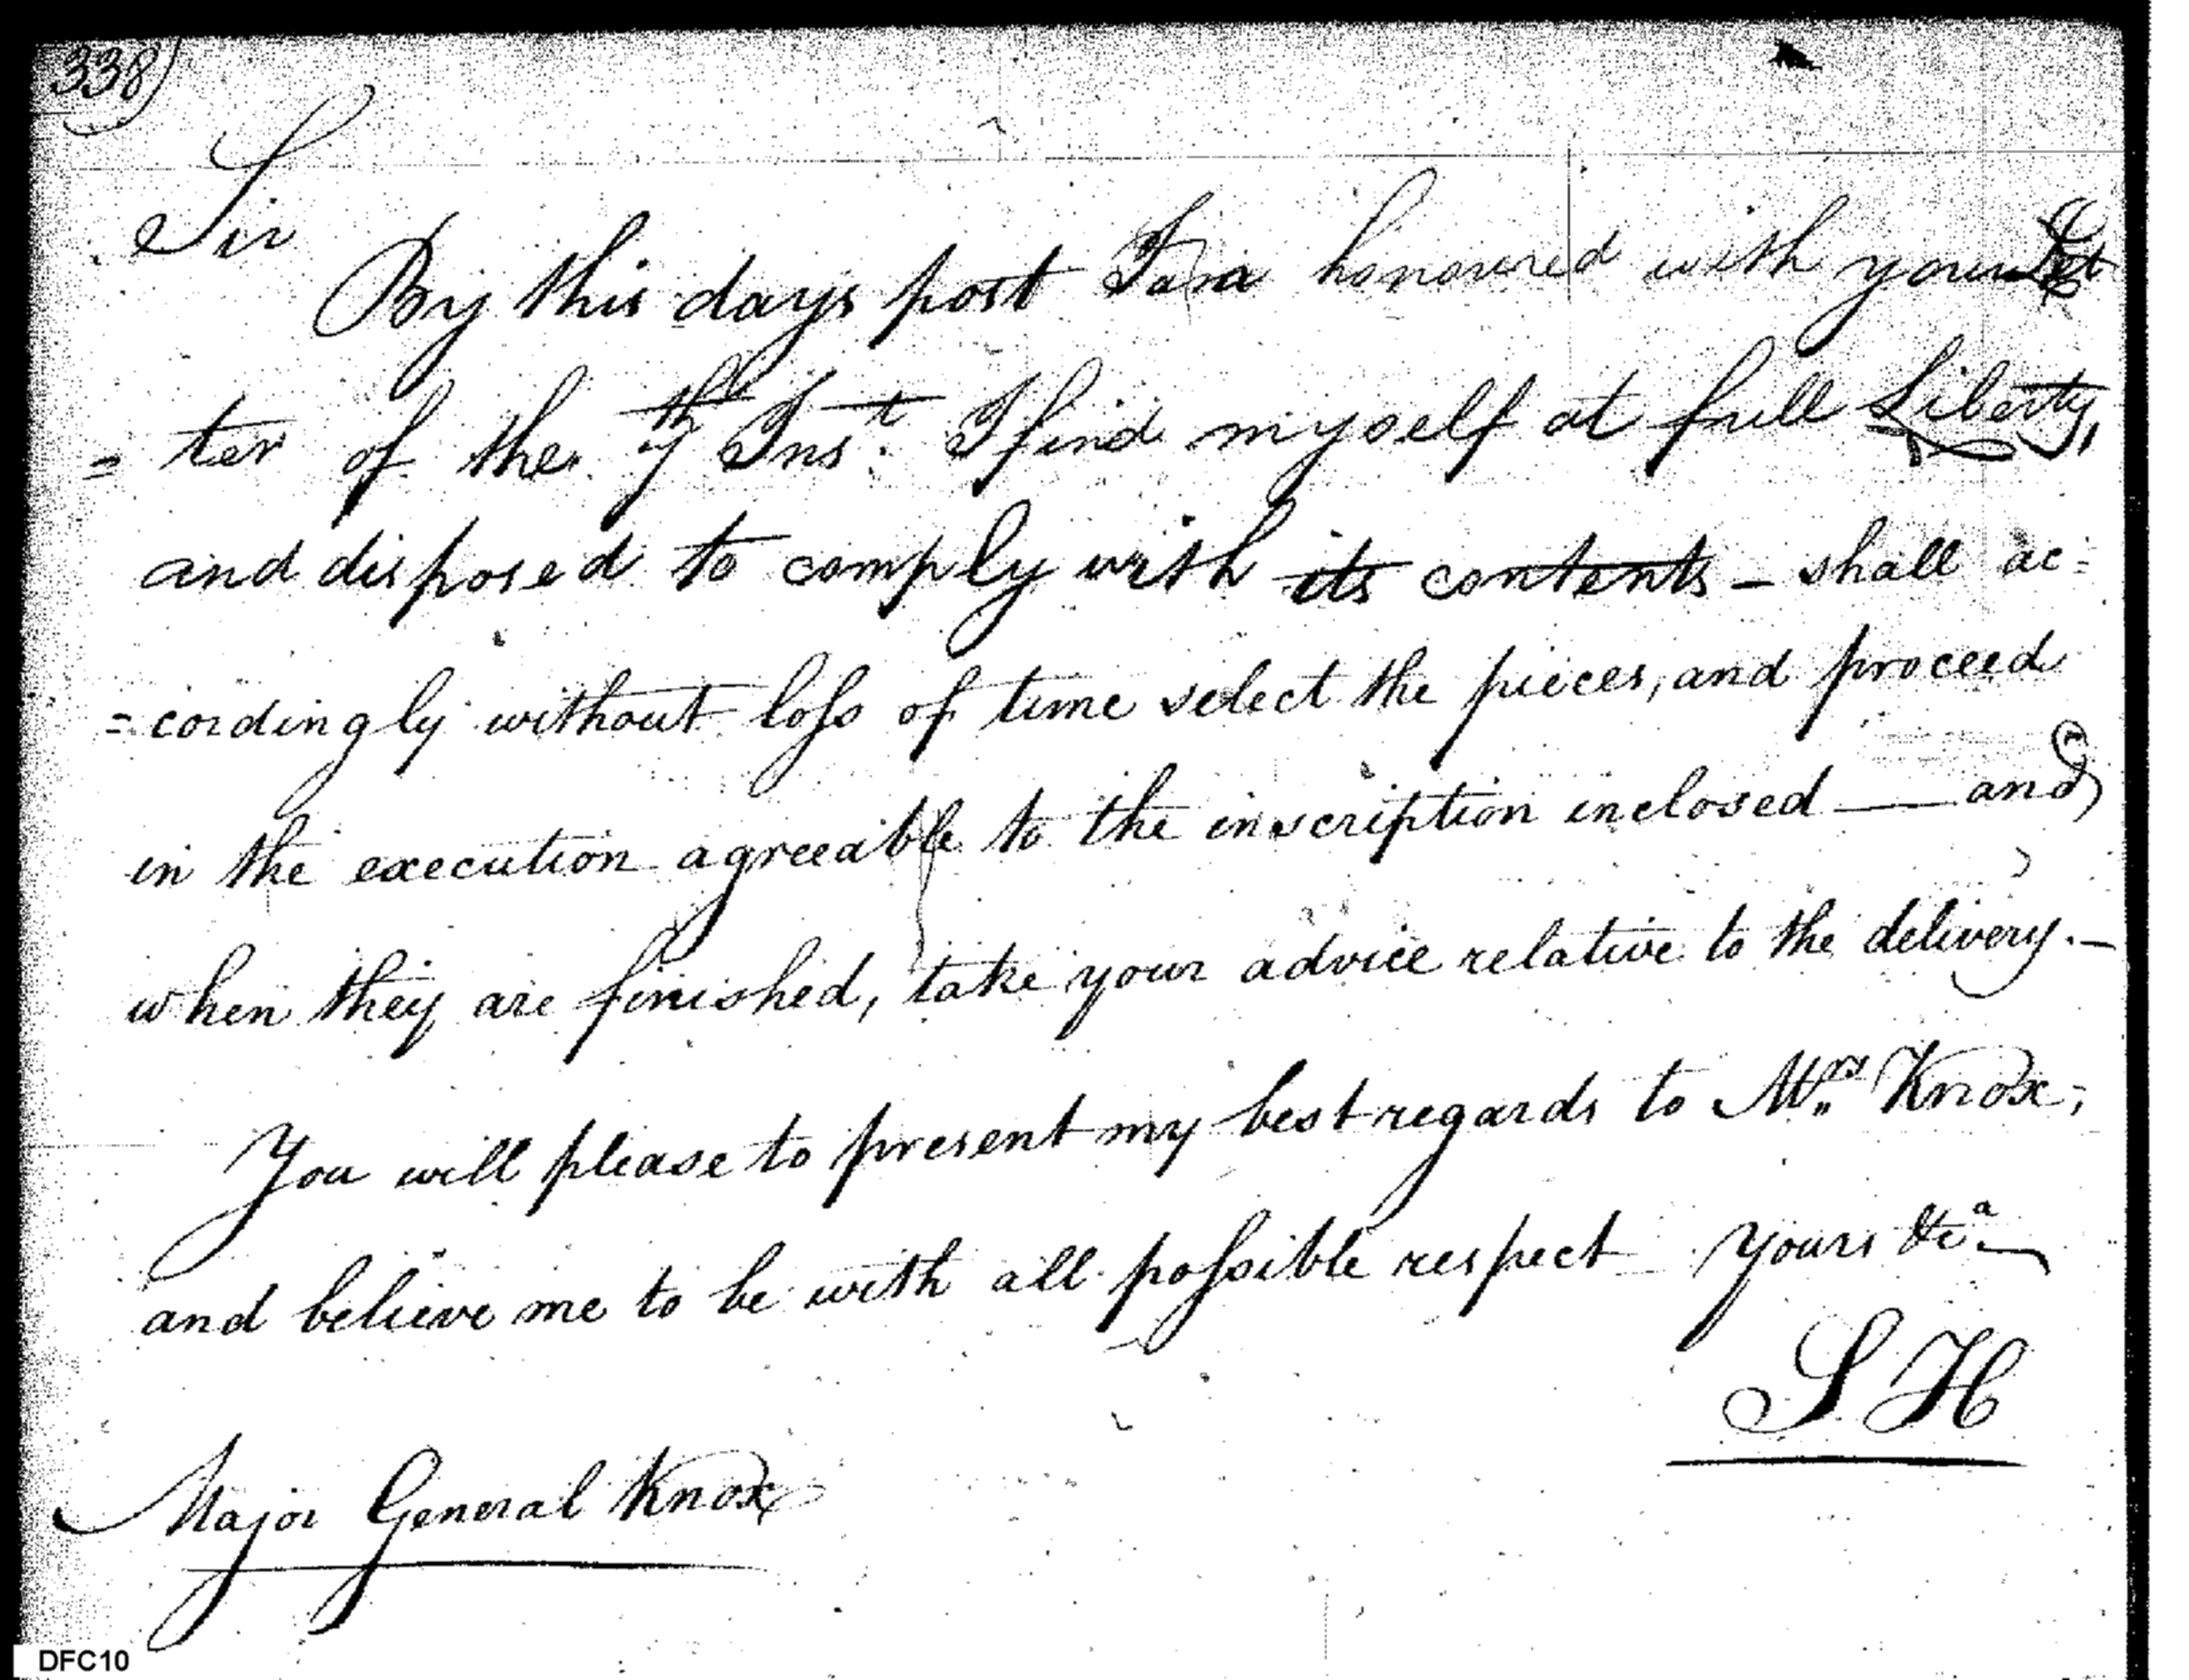 338)
Sir
By this days post I am honoured with your Let
= ter of the 7th Inst. I find myself at full Liberty,
and disposed to comply with its contents – shall ac=
= cordingly without loss of time select the pieces, and proceed
in the execution agreeable to the inscription inclosed — and
when they are finished, take your advice relative to the delivery. –
You will please to present my best regards to Mrs Knox;
and believe me to be with all possible respect yours &ca
S H
Major General Knox
DFC10